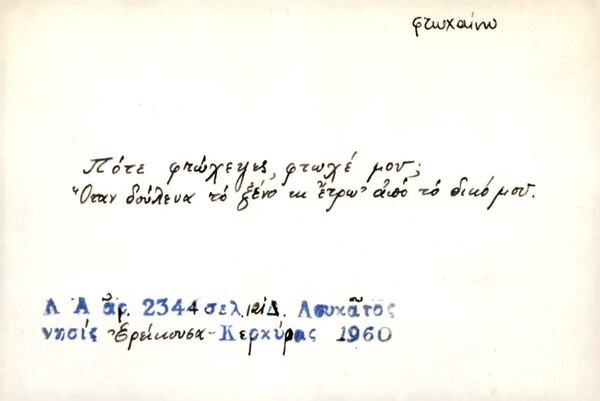 φτωχαίνω
Πότε φτώχεψες, φτωχέ μου;
Ὅταν δούλευα τό ξένο κι ἔτρω' ἀπό τό δικό μου.
Λ Α ἀρ. 2344 σελ. Δ. Λουκᾶτος
νησίς Ἐρείκουσα - Κερκύρας 1960